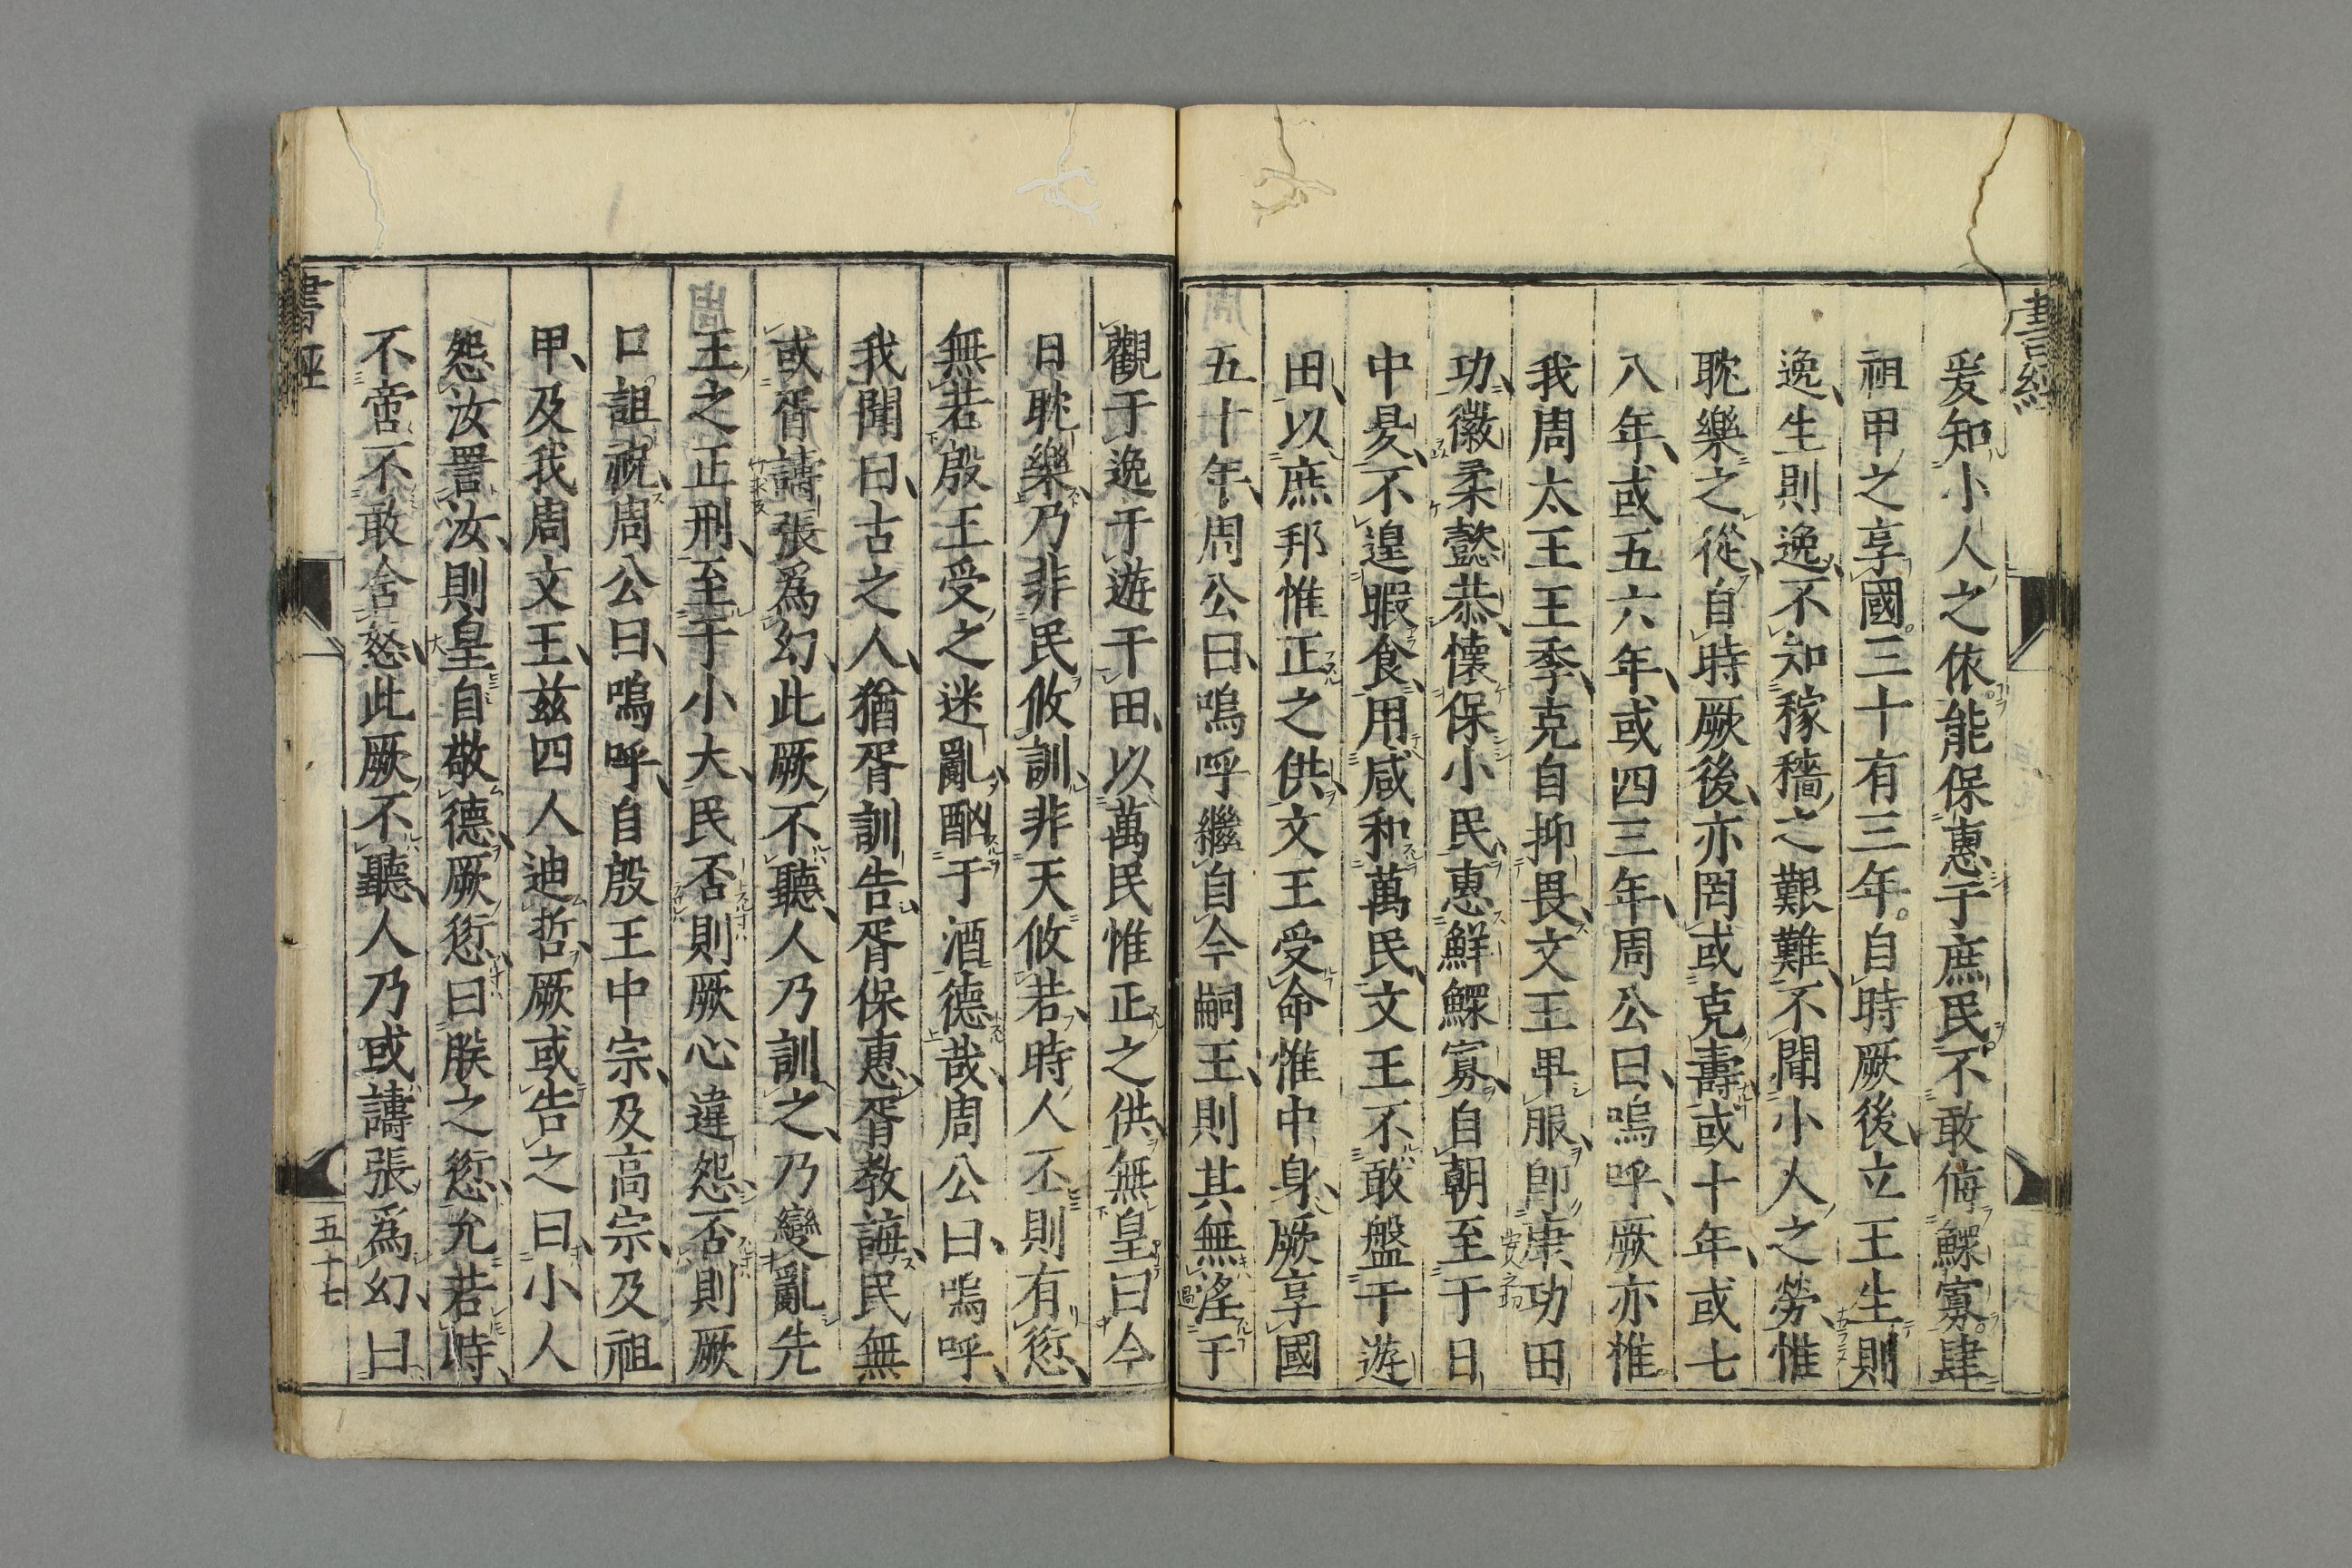 書經
爰知小人之依能保惠于庶民不敢侮鰥寡肆
祖甲之享國三十有三年自時厥後立王生則
逸生則逸不知稼穡之艱難不聞小人之勞惟
耽樂之從自時厥後亦罔或克壽或十年或七
八年或五六年或四三年周公曰嗚呼厥亦惟
我周太王王季克自抑畏文王卑服卽康功田
功徽柔懿恭懷保小民惠鮮鰥寡自朝至于日
中昃不遑暇食用咸和萬民文王不敢盤于遊
田以庶邦惟正之供文王受命惟中身厥享國
五十年周公曰嗚呼繼自今嗣王則其無淫于
觀于逸于遊于田以萬民惟正之供無皇曰今
日耽樂乃非民攸訓非天攸若時人丕則有愆
無若殷王受之迷亂酗于酒德哉周公曰嗚呼
我聞曰古之人猶胥訓告胥保惠胥教誨民無
或胥譸張爲幻此厥不聽人乃訓之乃變亂先
王之正刑至于小大民否則厥心違怨否則厥
口詛祝周公曰嗚呼自殷王中宗及高宗及祖
甲及我周文王玆四人迪哲厥或告之曰小人
怨汝詈汝則皇自敬德厥愆曰朕之愆允若時
不啻不敢含怒此厥不聽人乃或譸張爲幻曰
書經
五十七